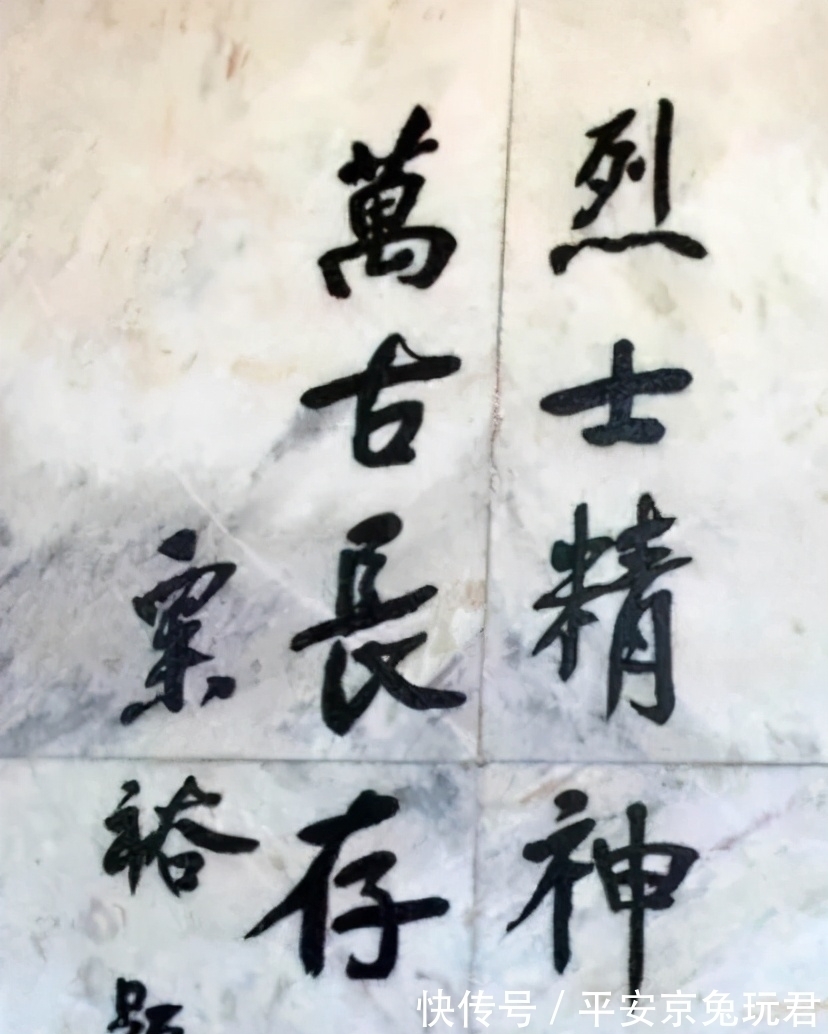 烈士精神
萬古長存
粟裕題
快传号 / 平安京兔玩君